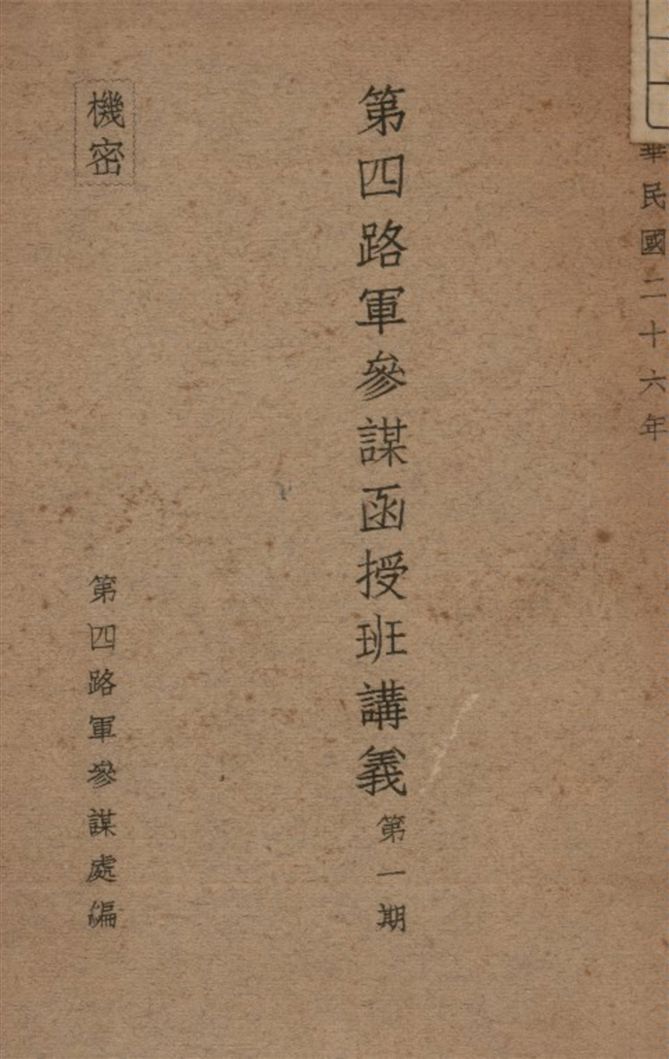 華民國二十六年
第四路軍參謀函授班講義 第一期
機密
第四路軍參謀處編